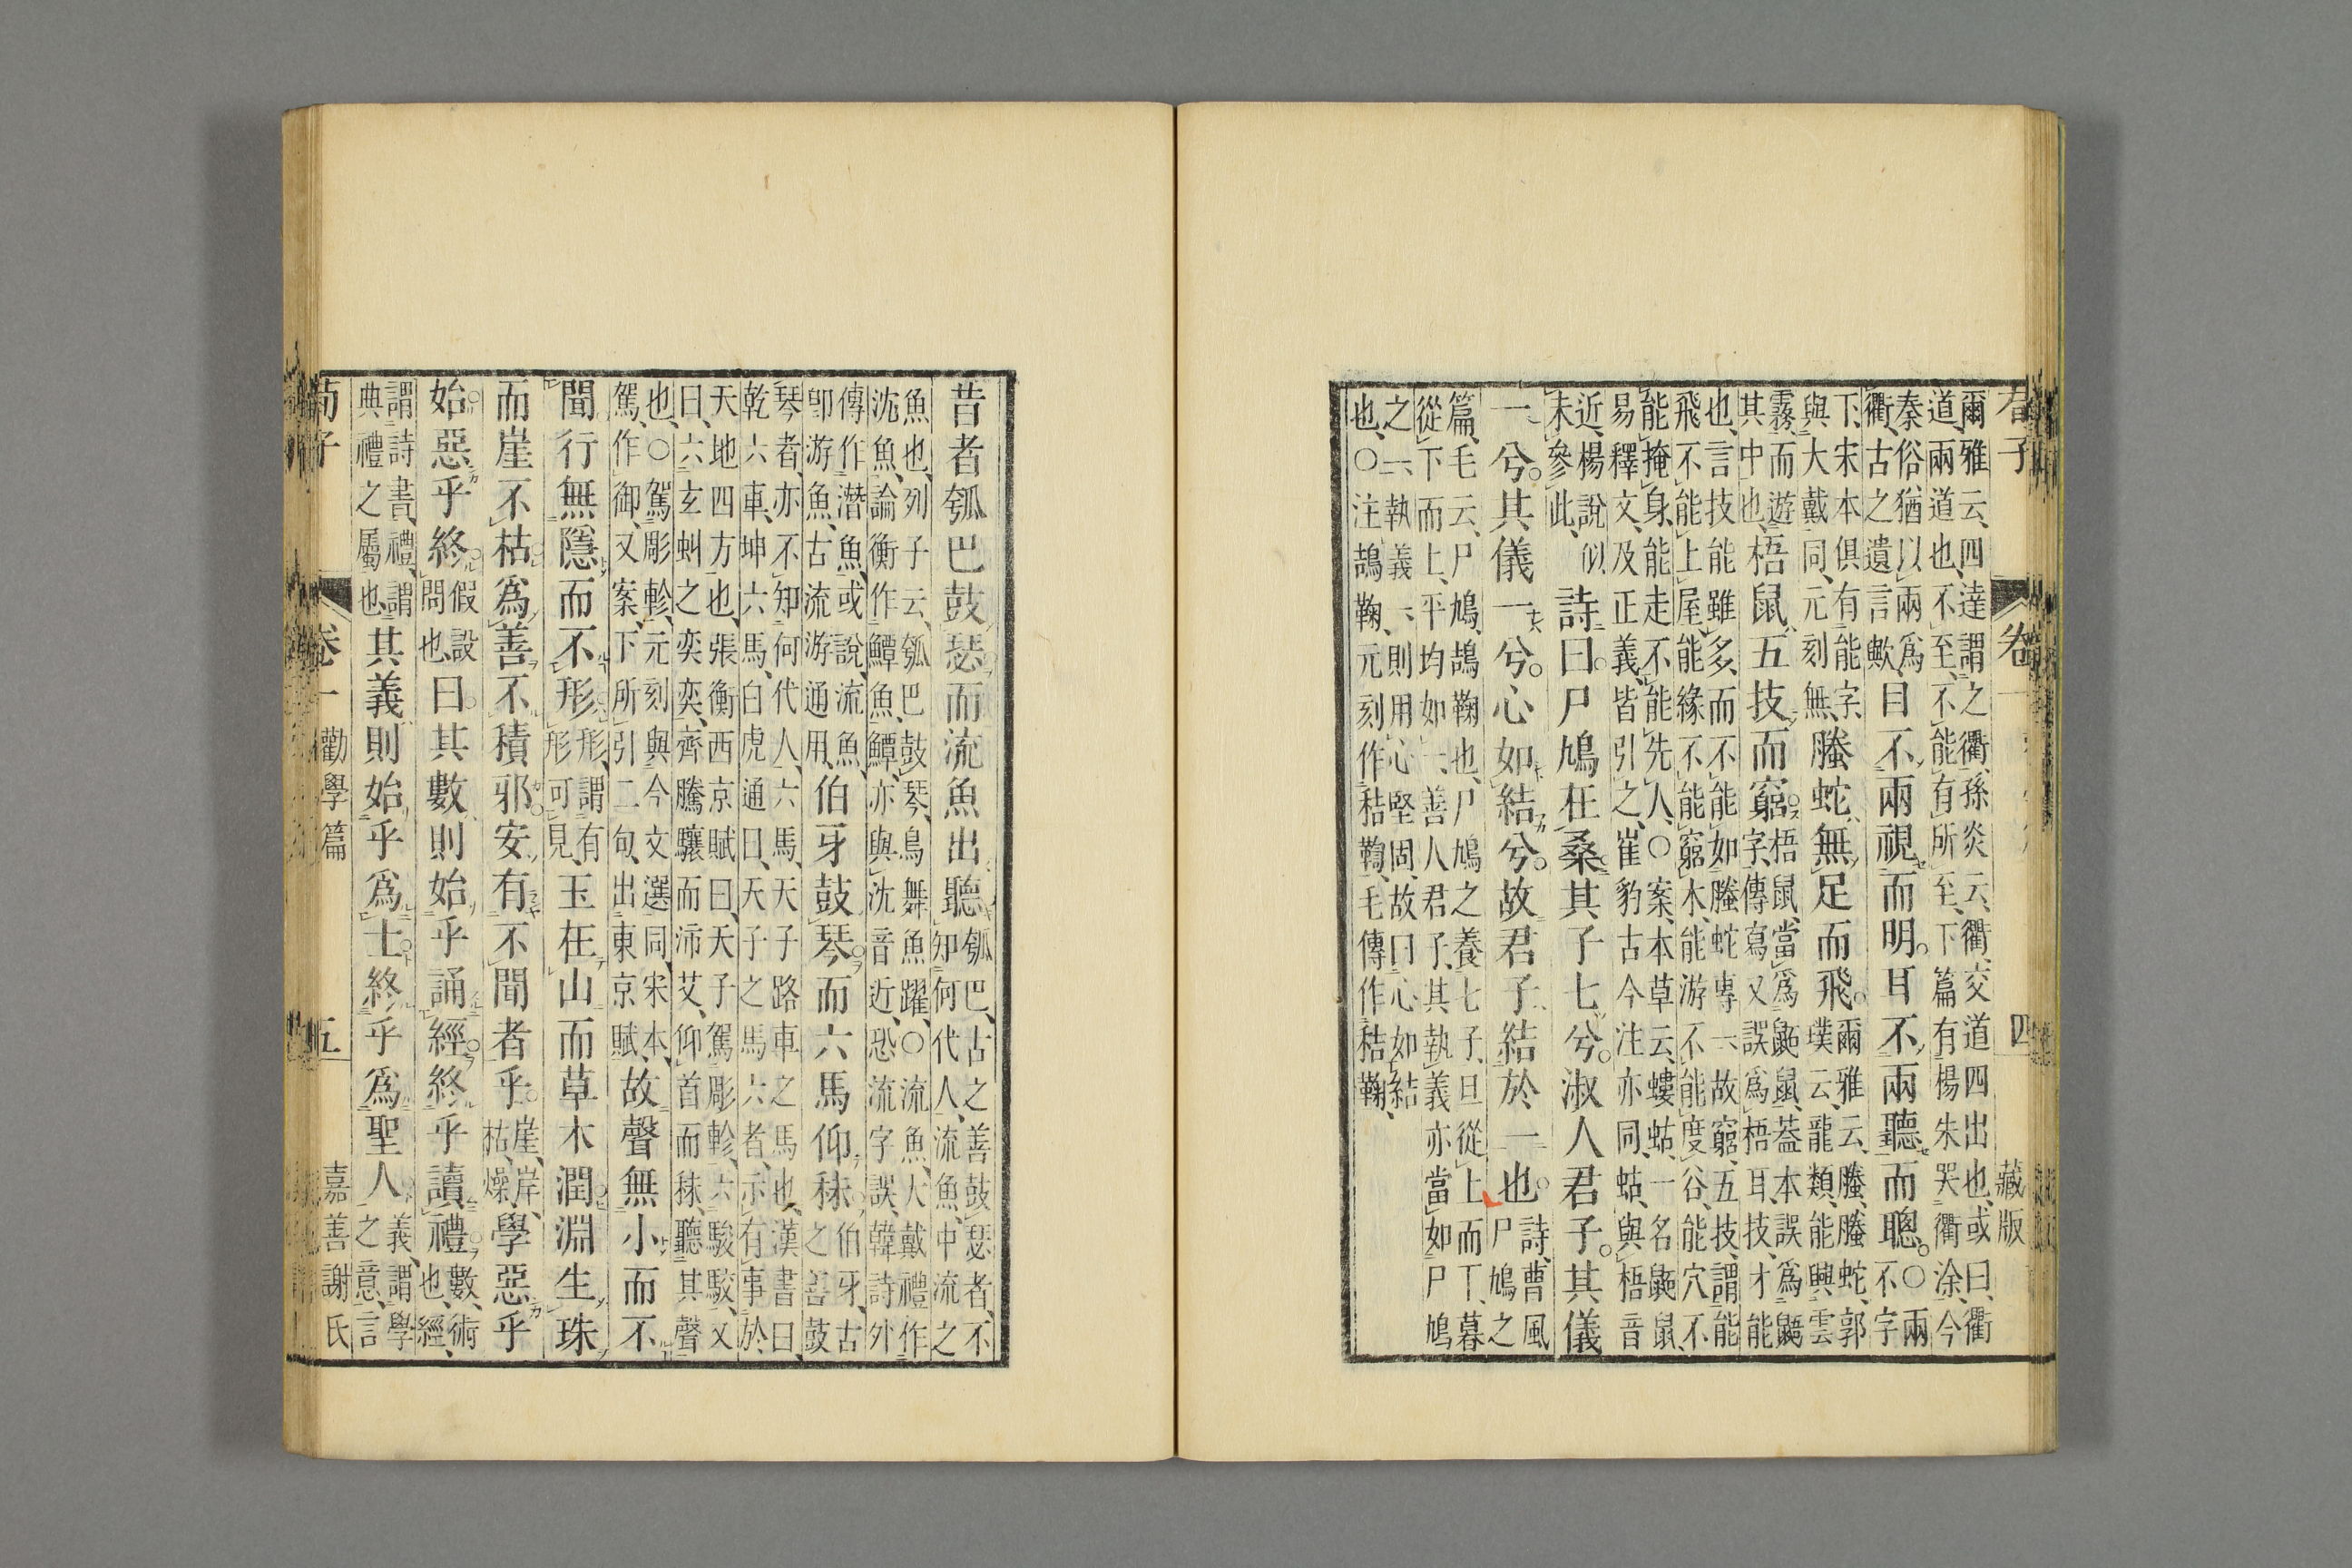 子 卷一 四 藏版
爾雅云、四達謂之衢、孫炎云、衢、交道四出也、或曰、衢
道、兩道也、不至、不能有所至、下篇有楊朱哭衢涂、今
秦俗猶以兩爲
衢、古之遺言歟、
目不兩視而明。耳不兩聽而聰。
○兩
不字
下、宋本俱有能字、
與大戴同、元刻無、
螣蛇無足而飛。
爾雅云、螣、螣蛇、郭
璞云、龍類、能興雲
霧、而遊
其中也、
梧鼠五技而窮。
梧鼠、當爲鼫鼠、葢本誤爲鼯
字、傳寫又誤爲梧耳、技、才能
也、言技能雖多、而不能如螣蛇專一、故窮、五技、謂能
飛不能上屋、能緣不能窮木、能游不能度谷、能穴不
能掩身、能走不能先人、○案、本草云、螻蛄、一名鼫鼠、
易釋文、及正義、皆引之、崔豹古今注亦同、蛄、與梧音
近、楊說似
未參此、
詩曰。尸鳩在桑。其子七兮。淑人君子。其儀
一兮。其儀一兮。心如結兮。故君子結於一也。
詩、曹風
尸鳩之
篇、毛云、尸鳩、鵠鞠也、尸鳩之養七子、旦從上而下、暮
從下而上、平均如一、善人君子、其執義亦當如尸鳩
之一、執義一、則用心堅固、故曰心如結
也、○注鵠鞠、元刻作秸鞠、毛傳作秸鞠、
昔者瓠巴鼓瑟而流魚出聽
瓠巴、古之善鼓瑟者、不
知何代人、流魚、中流之
魚也、列子云、瓠巴鼓琴、鳥舞魚躍、○流魚、大戴禮作
沈魚、論衡作鱏魚、鱏、亦與沈音近、恐流字誤、韓詩外
傳作潛魚、或說、流魚、
卽游魚、古流游通用、
伯牙鼓琴。而六馬仰秣。
伯牙、古
之善鼓
琴者、亦不知何代人、六馬、天子路車之馬也、漢書曰、
乾六車、坤六馬、白虎通曰、天子之馬六者、示有事於
天地四方也、張衡西京賦曰、天子駕彫軫、六駿駮、又
曰、六玄虯之奕奕、齊騰驤而沛艾、仰首而秣、聽其聲
也、○駕彫軫、元刻與今文選同、宋本、
駕、作御、又案、下所引二句、出東京賦、
故聲無小而不
聞行無隱而不形
形、謂有
形可見、
玉在山而草木潤淵生珠
而崖不枯爲善不積邪。安有不聞者乎。
崖、岸、
枯、燥、
學惡乎
始。惡乎終。
假設
問也、
曰。其數則始乎誦經。終乎讀禮。
數、術
也、經、
謂詩書、禮、謂
典禮之屬也、
其義則始乎爲士。終乎爲聖人
義、謂學
之意、言
荀子 卷一 勸學篇 五 嘉善謝氏